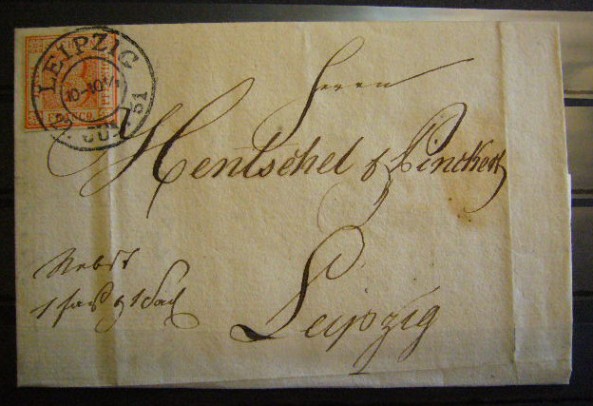 LEIPZIG
10-10¼
JUN 51
FRANCO.
Herrn
Hentschel & Pinckert
Leipzig
Nebst
1 Fass & 1 Sack